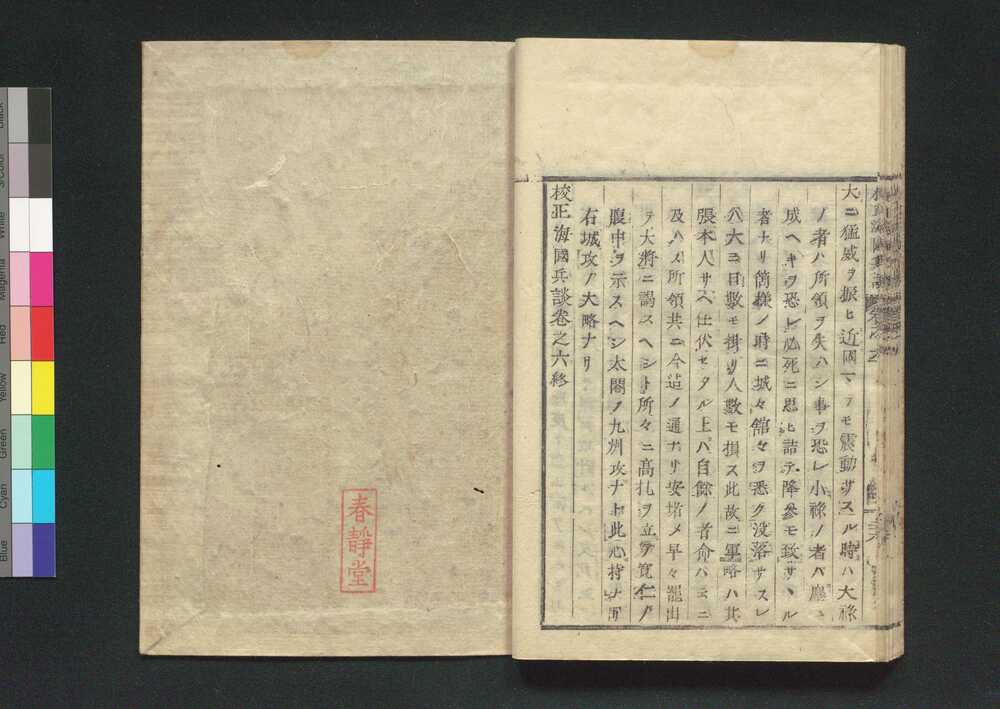 大ニ猛威ヲ振ヒ近國マテモ震動サスル時ハ大祿
ノ者ハ所領ヲ失ハン事ヲ恐レ小祿ノ者ハ塵ニ
成ヘキヲ恐レ必死ニ思ヒ詰テ降參モ致サヽル
者ナリ箇樣ノ時ニ城々舘々ヲ悉ク沒落サスレ
ハ大ニ日數モ掛リ人數モ損ス此故ニ軍略ハ其
張本人サヘ仕伏セタル上ハ自餘ノ者命ハ云ニ
及ハス所領共ニ今迠ノ通ナリ安堵メ早々罷出
ヲ大將ニ謁スヘシト所々ニ高札ヲ立テ寛仁ノ
腹中ヲ示スヘシ太閤ノ九州攻ナト此心持ナリ
右城攻ノ大略ナリ
校正海國兵談卷之六終
春靜堂
Black
3/Color
White
Magenta
Red
Yellow
Green
Cyan
Blue